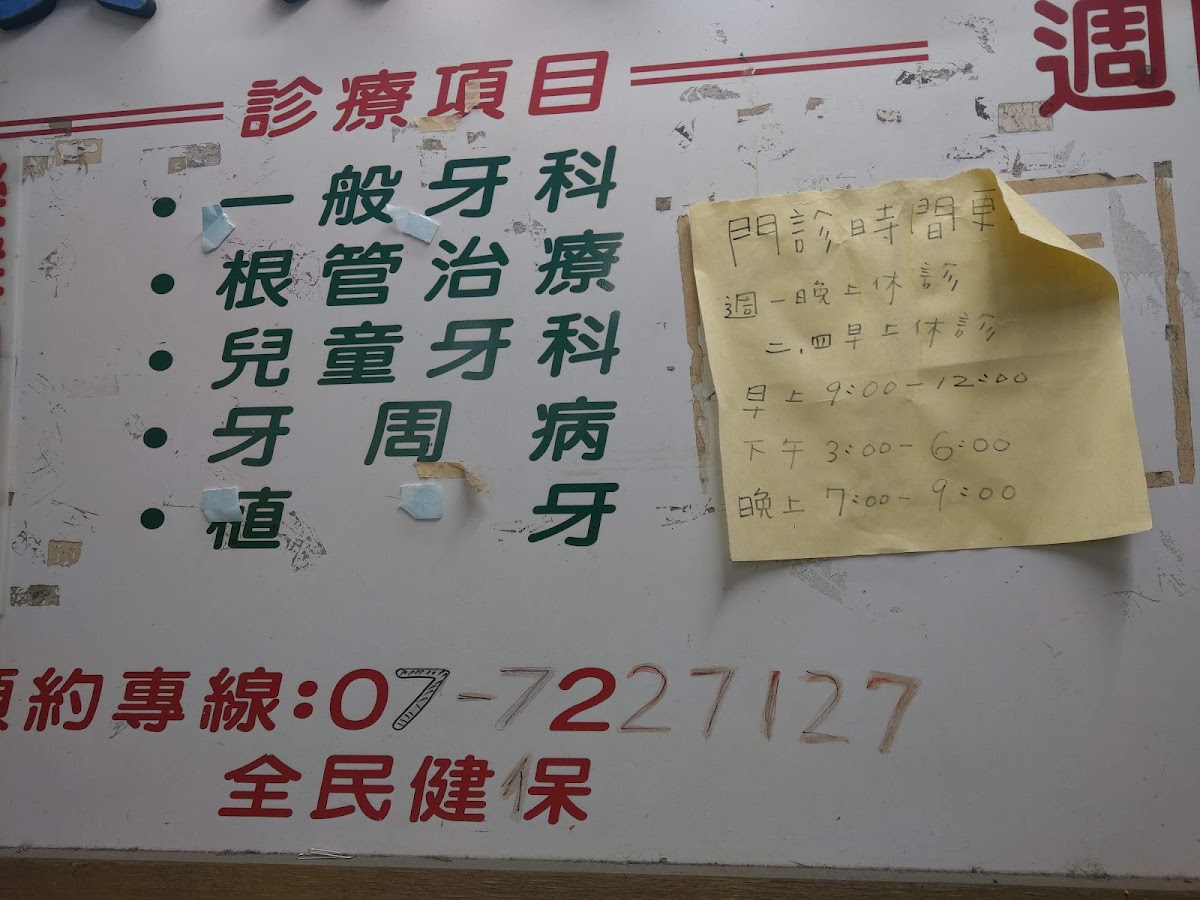 診療項目
週
・一般牙科
・根管治療
・兒童牙科
・牙周病
・植牙
門診時間更
週一晚上休診
二,四早上休診
早上 9:00-12:00
下午 3:00-6:00
晚上 7:00-9:00
預約專線:07-7227127
全民健保